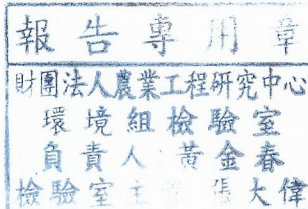 報告專用章
財團法人農業工程研究中心
環境組檢驗室
負責人黃金春
檢驗室主 張大偉